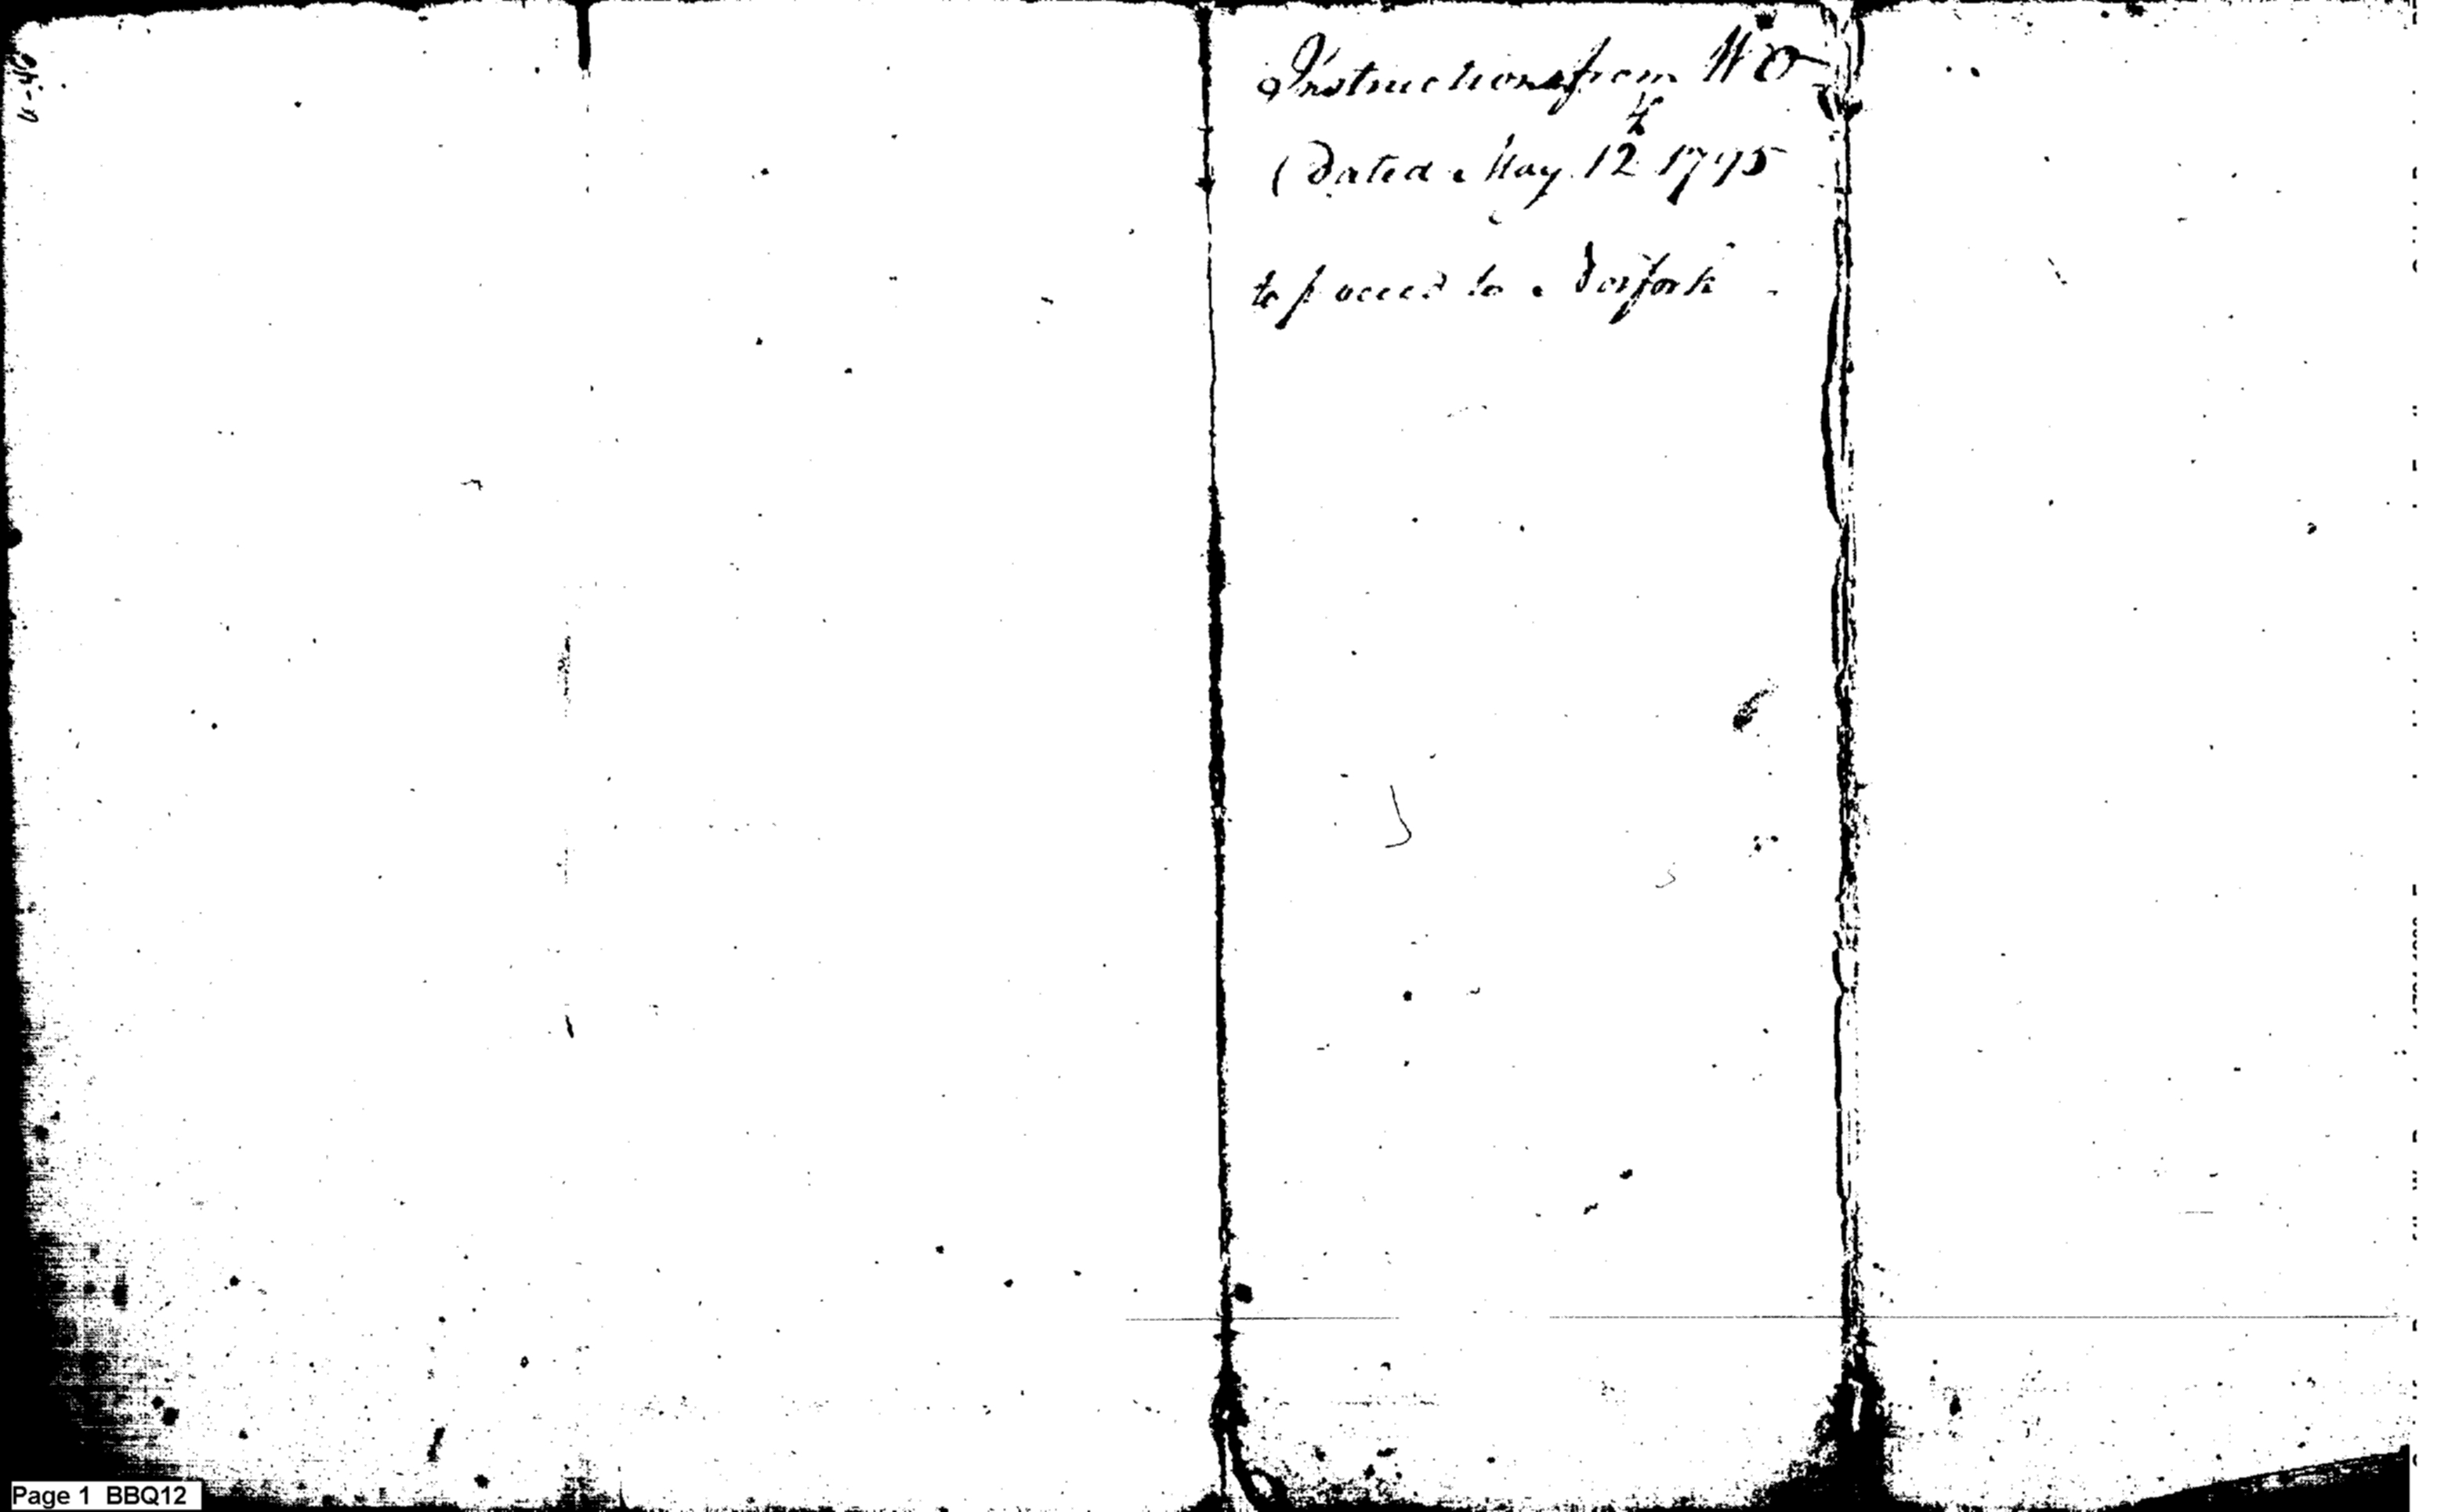 Instructions from W O
(Dated May 12 1795
to proceed to Norfork
Page 1 BBQ12